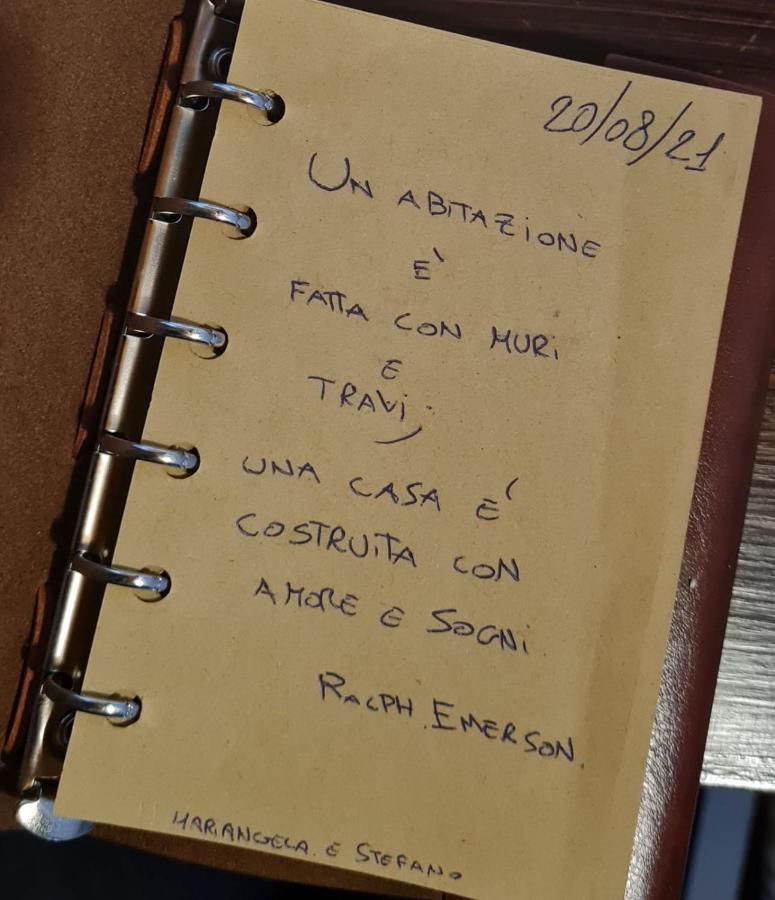 20/08/21
UN ABITAZIONE
E'
FATTA CON MURi
E
TRAVi,
UNA CASA E'
COSTRUiTA CON
AMORE E SOGNi
RALPH EMERSON.
MARiANGELA E STEFANO